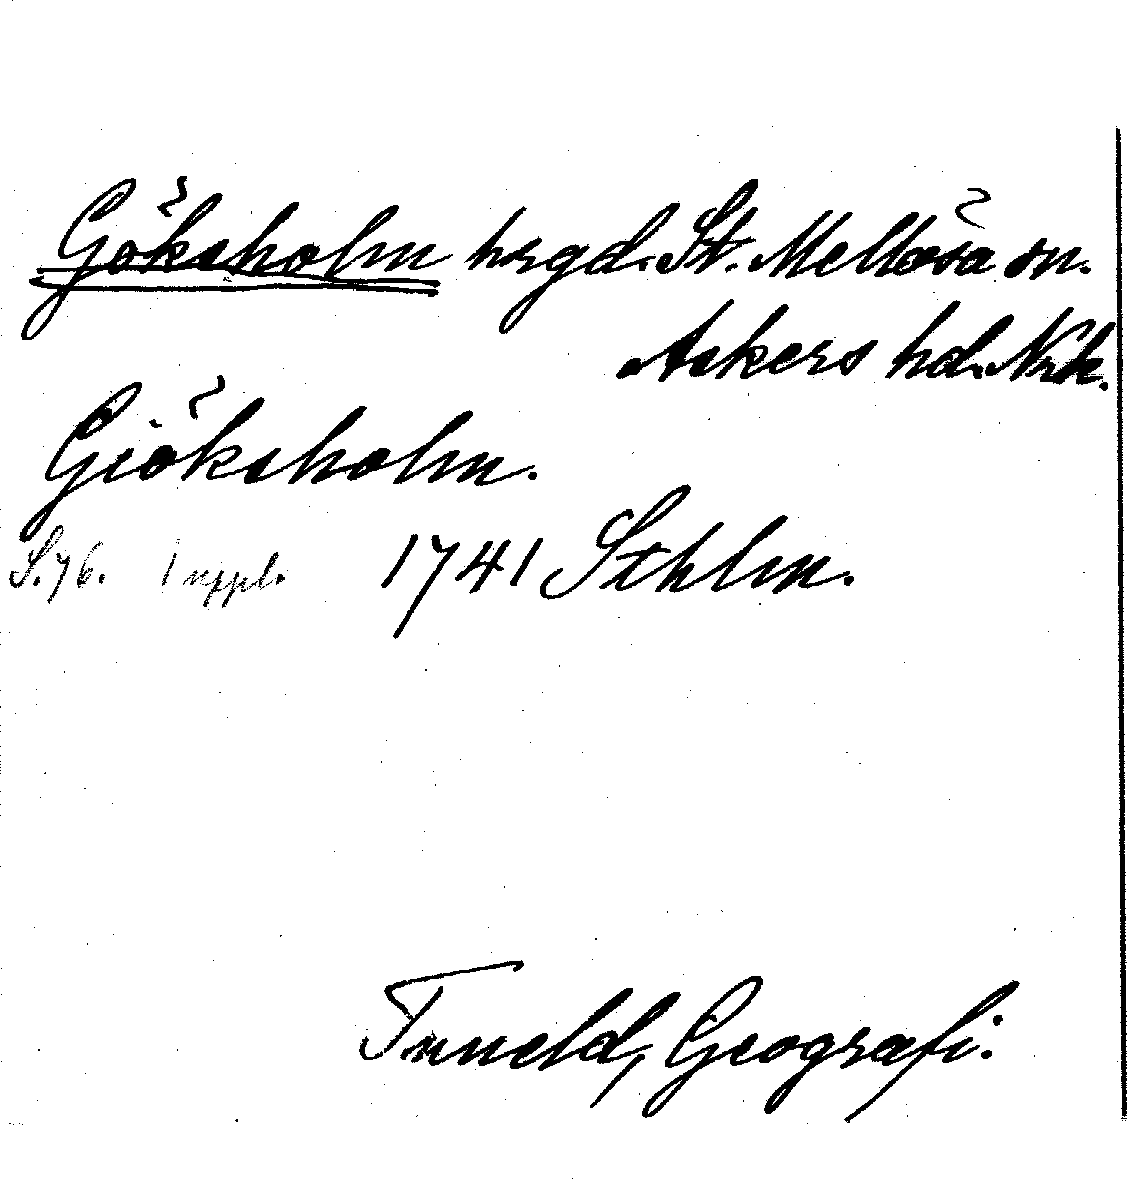 Göksholm hrgd. St. Mellösa sn.
Askers hd. Nrk.
Giöksholm.
S. 76. 1 uppl. 1741 Sthlm.
Tuneld, Geografi.